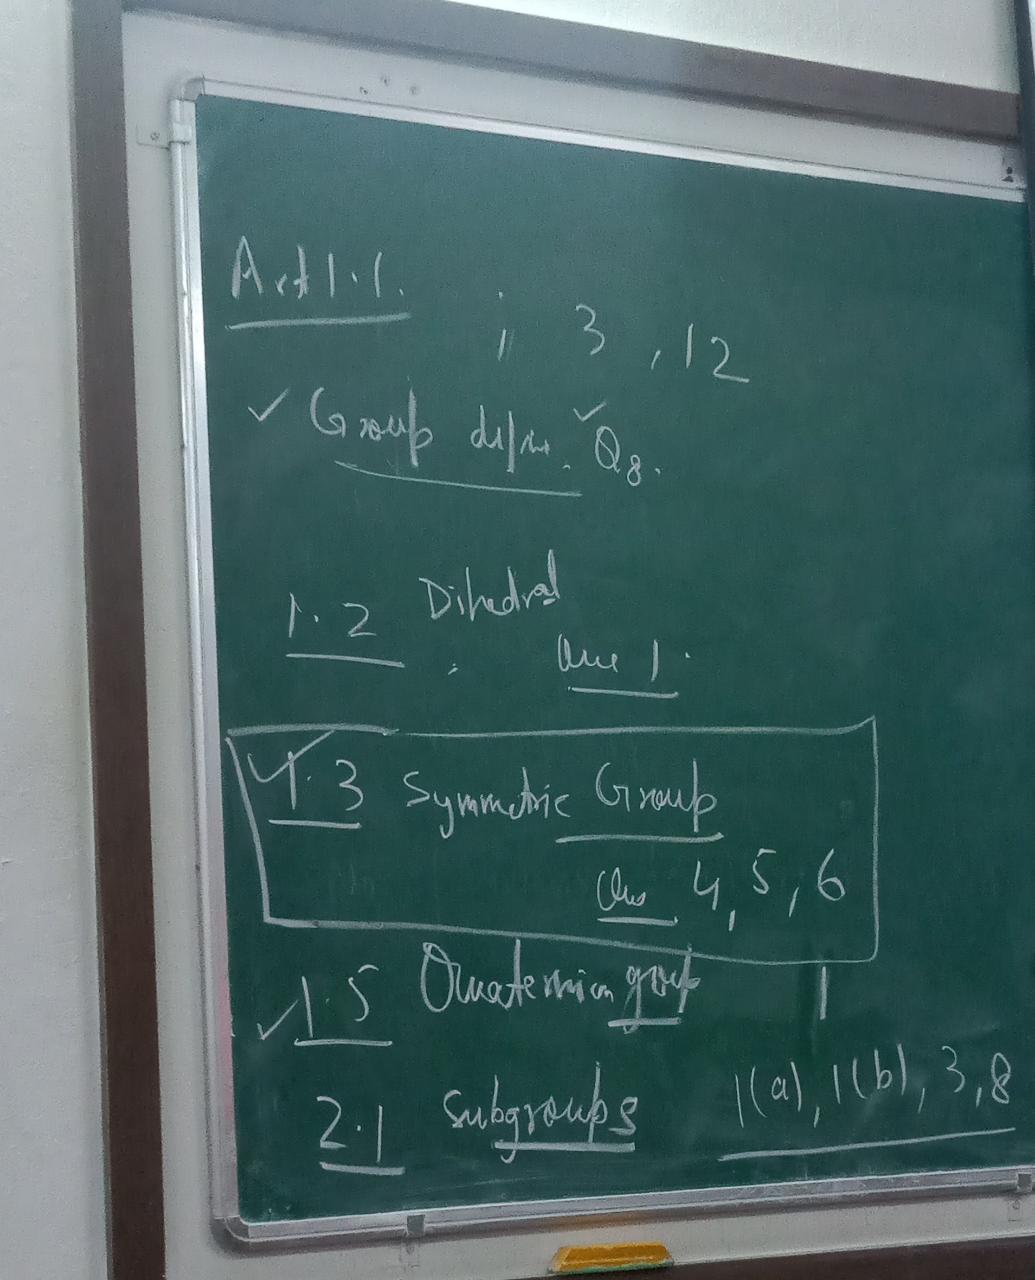 Art 1.1.
; 3, 12
✓ Group defn. ✓ Q8.
1.2 Dihedral
Que 1.
✓ 1.3 Symmetric Group
Ques 4, 5, 6
✓ 1.5 Quaternion group 1
2.1 Subgroups 1(a), 1(b), 3, 8